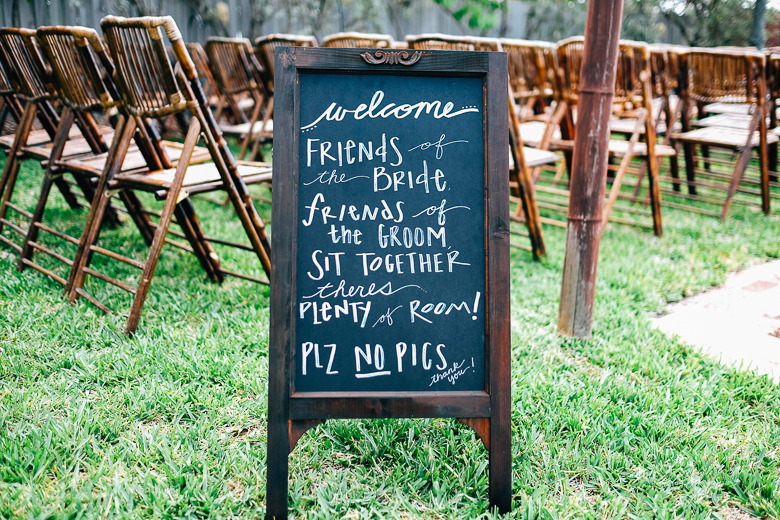 welcome
FRIENDS of
the BRIDE,
FRIENDS of
the GROOM,
SIT TOGETHER
theres
PLENTY of ROOM!
PLZ NO PICS
thank you!